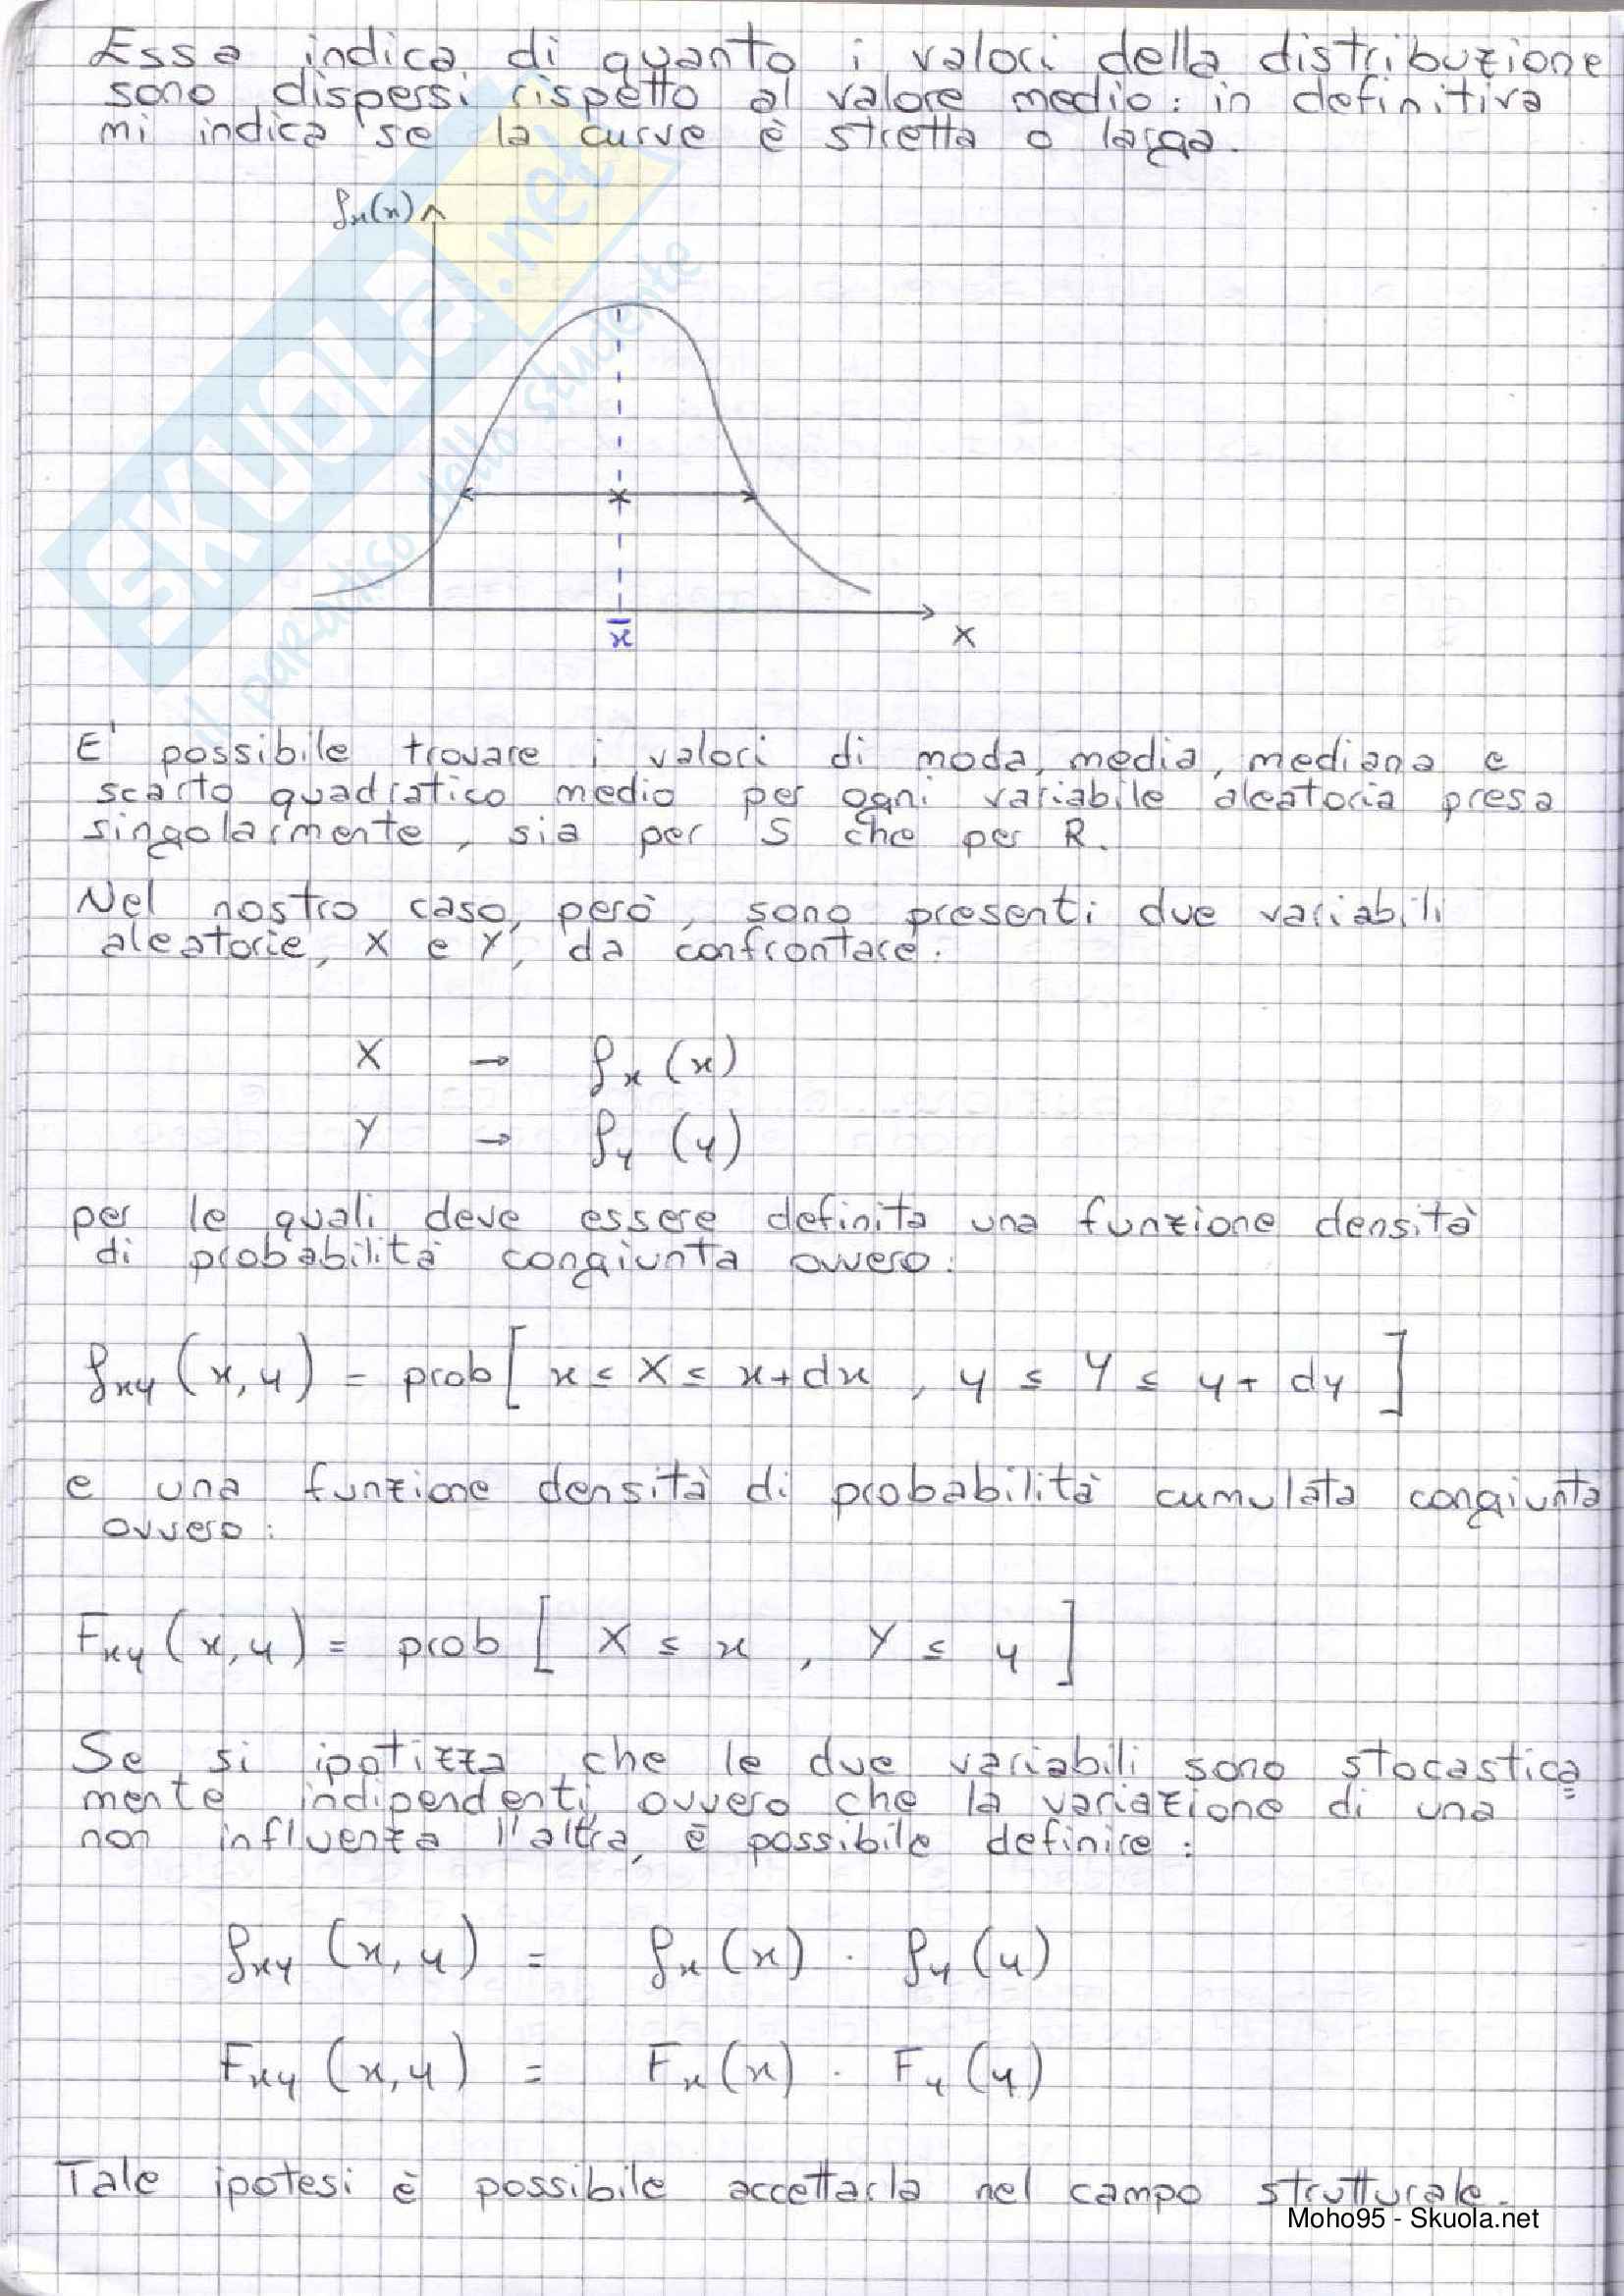 Essa indica di quanto i valori della distribuzione
sono dispersi rispetto al valore medio: in definitiva
mi indica se la curva è stretta o larga.
fx(x)
x̄
X
E' possibile trovare i valori di moda, media, mediana e
scarto quadratico medio per ogni variabile aleatoria presa
singolarmente, sia per S che per R.
Nel nostro caso, però, sono presenti due variabili
aleatorie, X e Y, da confrontare.
X → fx (x)
Y → fy (y)
per le quali deve essere definita una funzione densità
di probabilità congiunta ovvero:
fxy (x,y) = prob [ x ≤ X ≤ x+dx , y ≤ Y ≤ y+dy ]
e una funzione densità di probabilità cumulata congiunta
ovvero:
Fxy (x,y) = prob [ X ≤ x , Y ≤ y ]
Se si ipotizza che le due variabili sono stocastica=
mente indipendenti, ovvero che la variazione di una
non influenza l'altra, è possibile definire:
fxy (x,y) = fx (x) · fy (y)
Fxy (x,y) = Fx (x) · Fy (y)
Tale ipotesi è possibile accettarla nel campo strutturale.
Moho95 - Skuola.net
SKUOLA.net
il paradiso dello studente